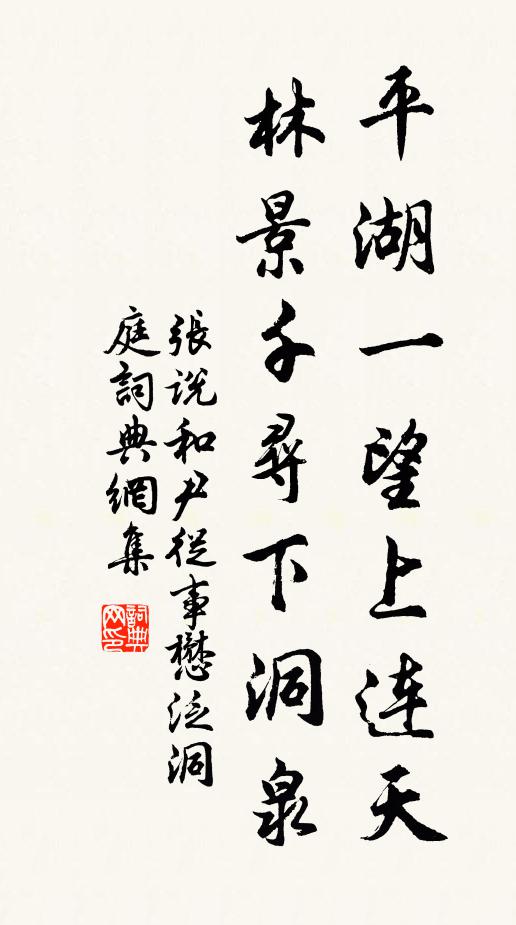 平湖一望上連天
林景千尋下洞泉
張說和尹從事懋泛洞
庭詞典網集
詞典
网印